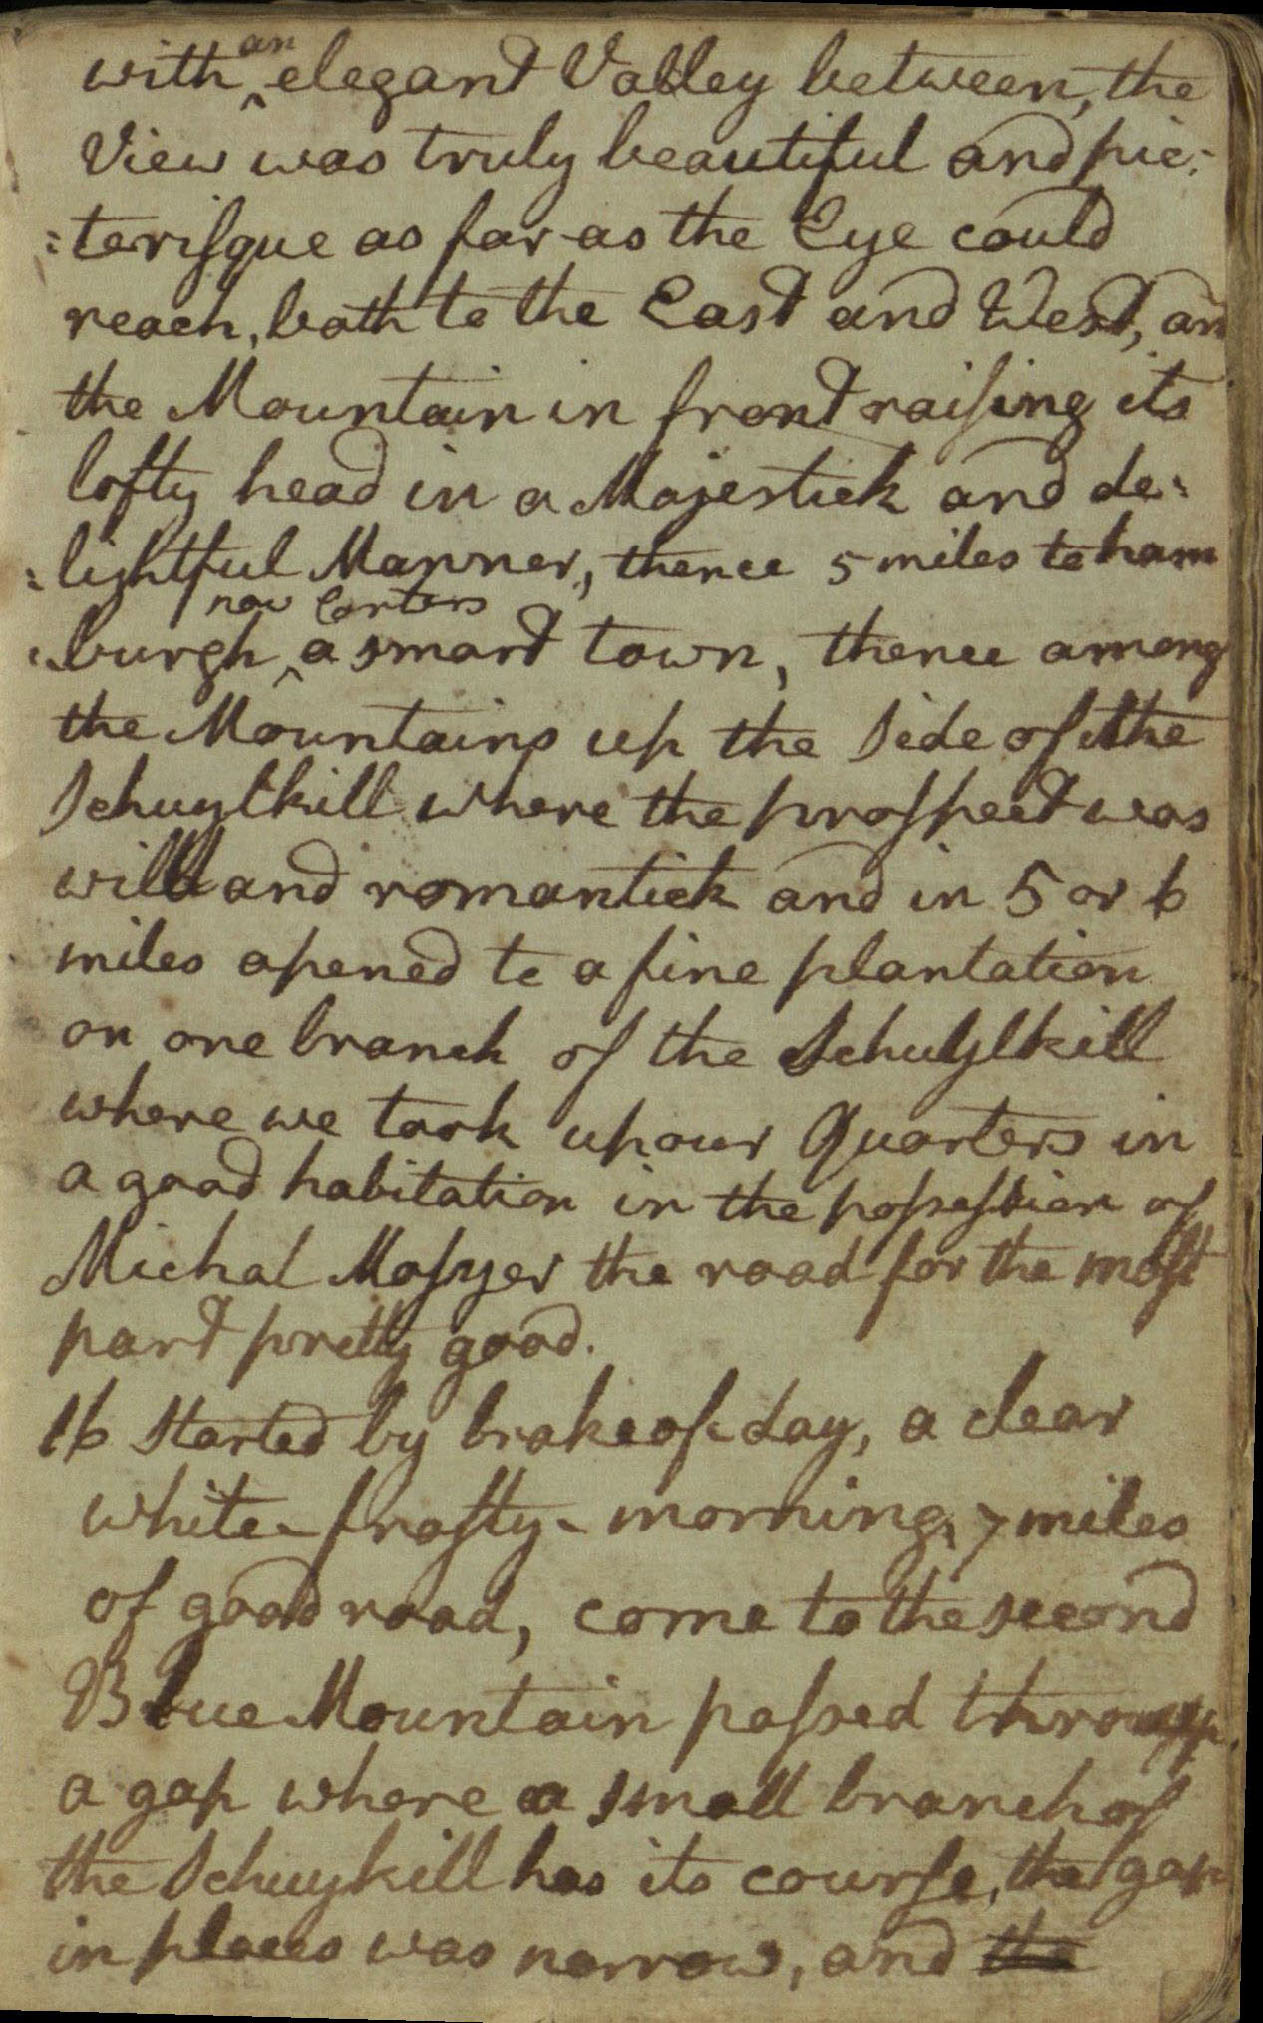 with ^an elegant Valley between, the
View was truly beautiful and pic:
:terisque as far as the Eye could
reach, both to the East and West, an
the Mountain in front raising its
lofty head in a Majestick and de:
:lightful Manner, thence 5 miles to ham
now Carters
:burgh ^ a smart town, thence among
the Mountains up the Side of the
Schuylkill where the prospect was
wild and romantick and in 5 or 6
miles opened to a fine plantation
on one branch of the Schuylkill
where we took up our Quarters in
a good habitation in the possession of
Michal Mosyer the road for the most
part pretty good.
16 Started by brake of day, a clear
white-frosty-morning, 7 miles
of good road, come to the second
Blue Mountain passed through
a gap where a small branch of
the Schuykill has its course, the gap
in places was narrow, and the